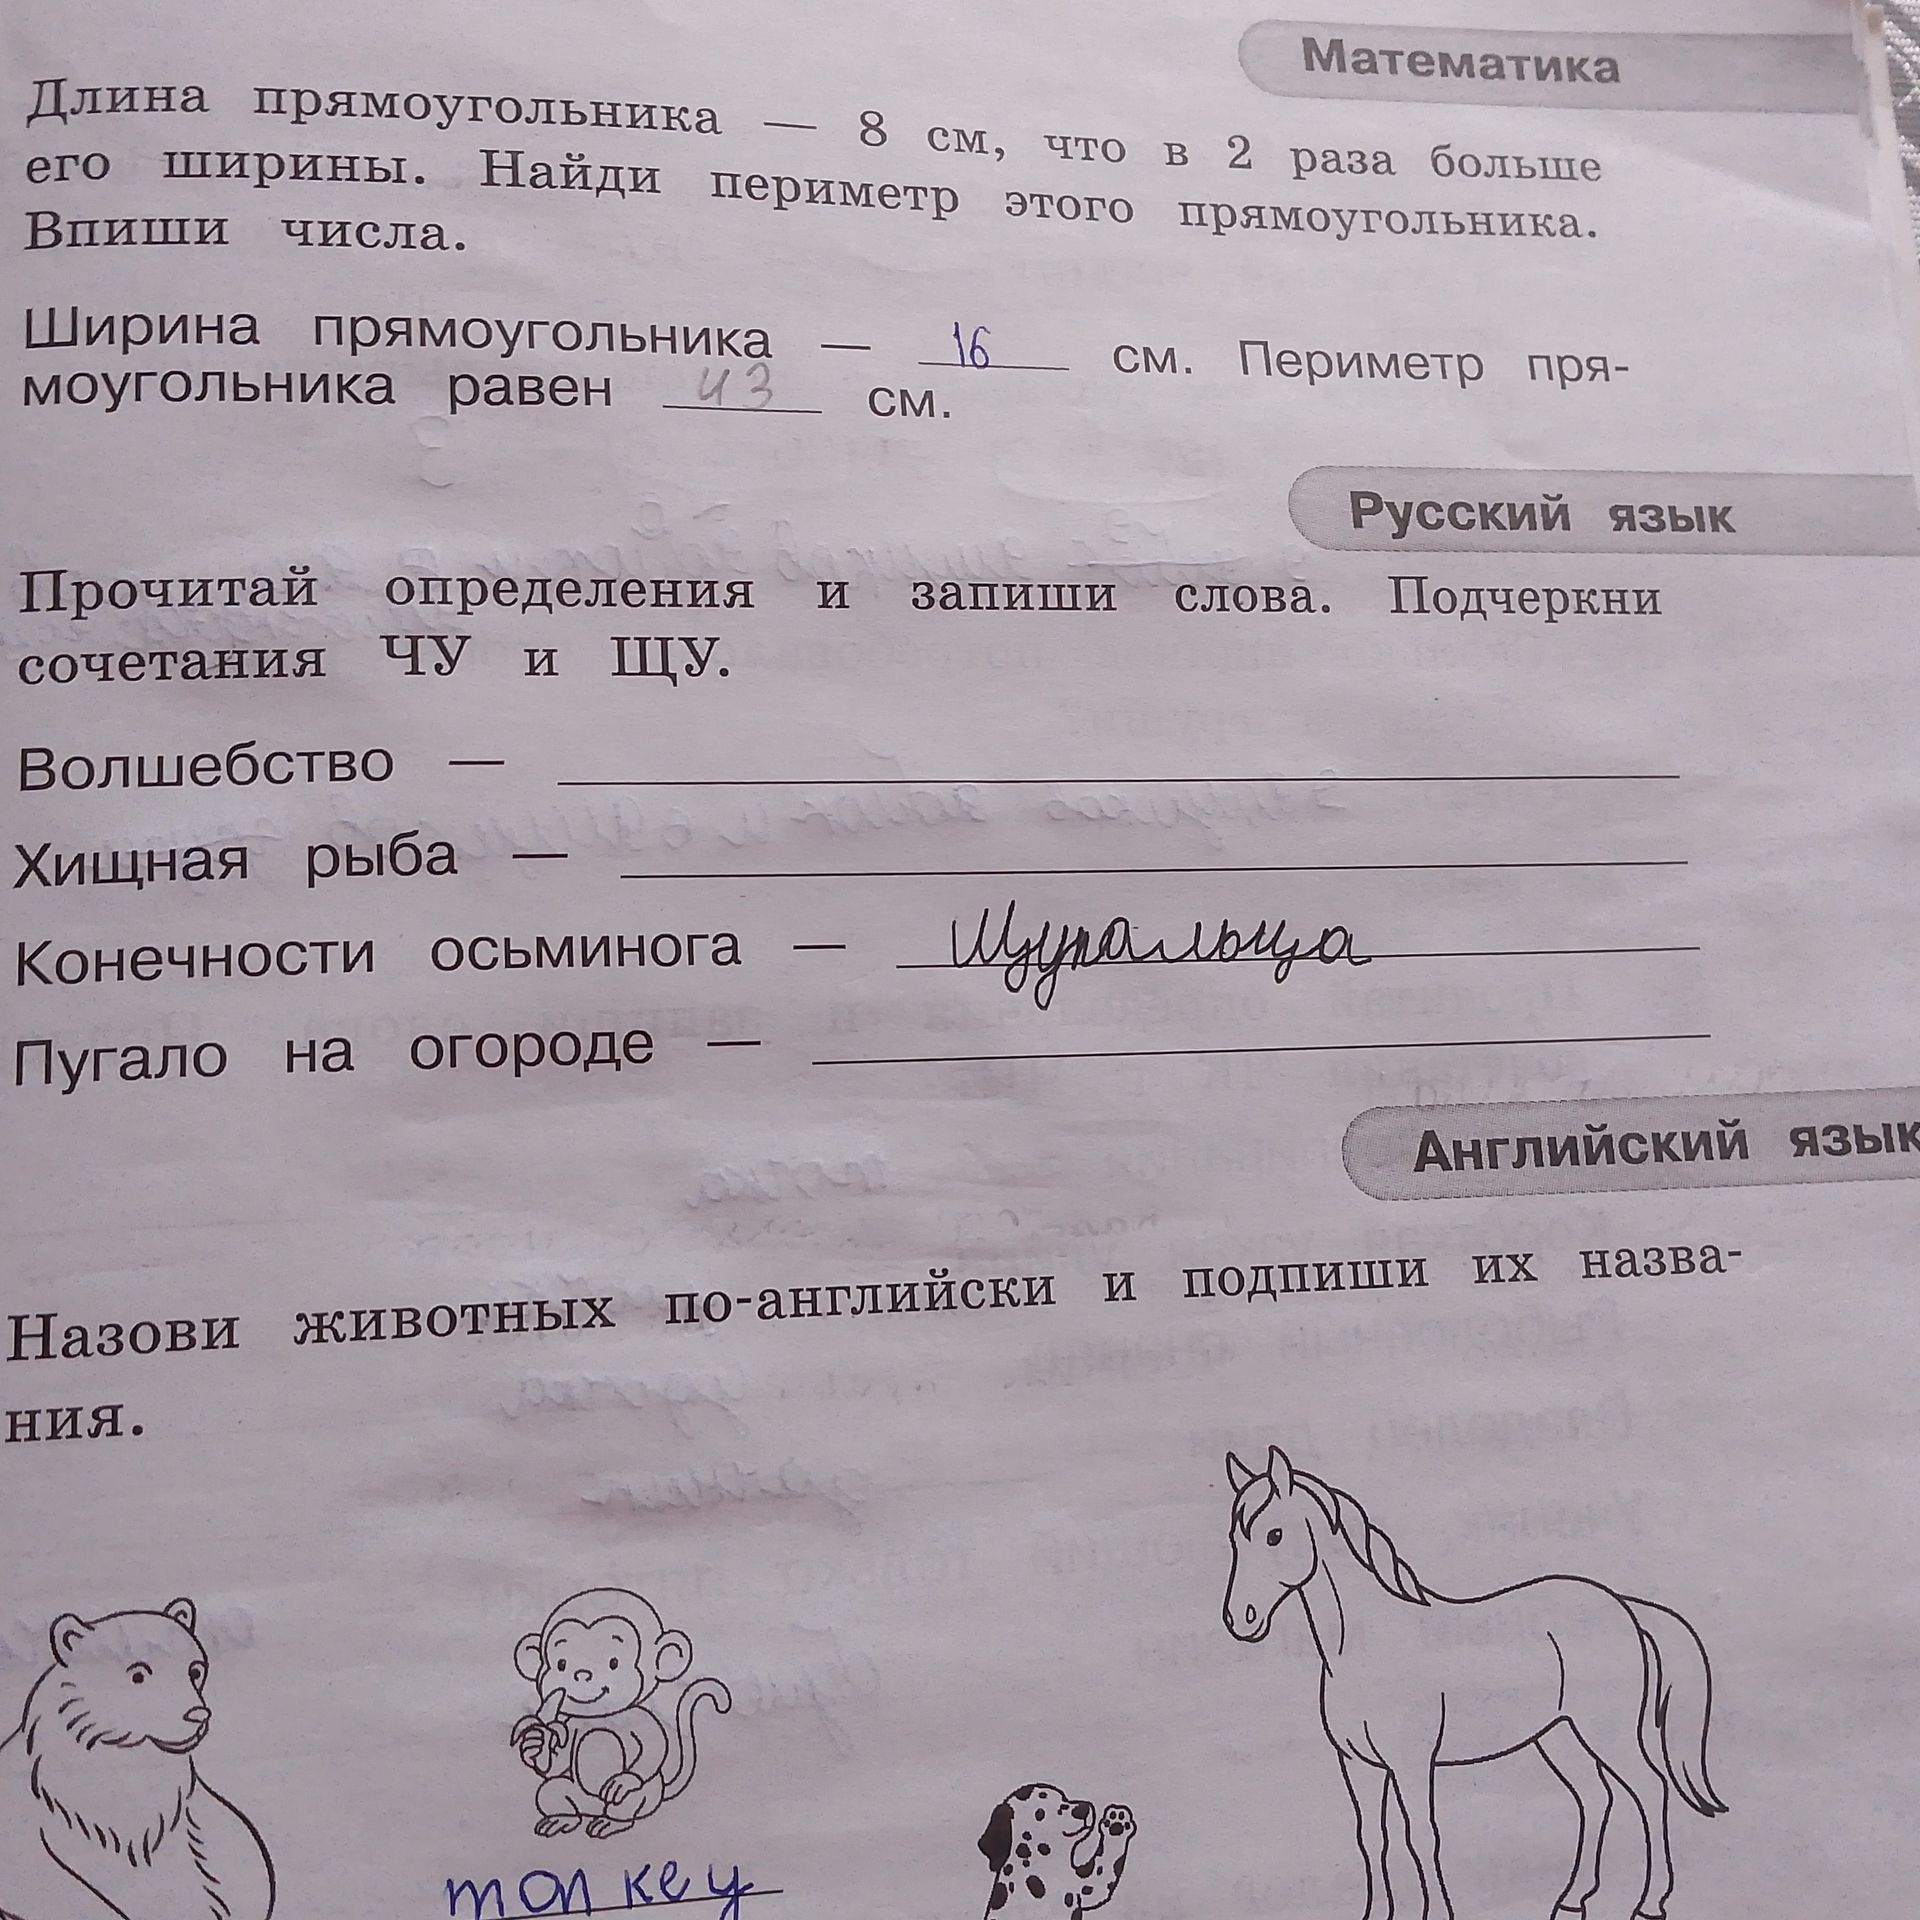 Математика
Длина прямоугольника — 8 см, что в 2 раза больше
его ширины. Найди периметр этого прямоугольника.
Впиши числа.
Ширина прямоугольника — 16 см. Периметр пря-
моугольника равен 43 см.
Русский язык
Прочитай определения и запиши слова. Подчеркни
сочетания ЧУ и ЩУ.
Волшебство —
Хищная рыба —
Конечности осьминога — Щупальца
Пугало на огороде —
Английский язык
Назови животных по-английски и подпиши их назва-
ния.
monkey